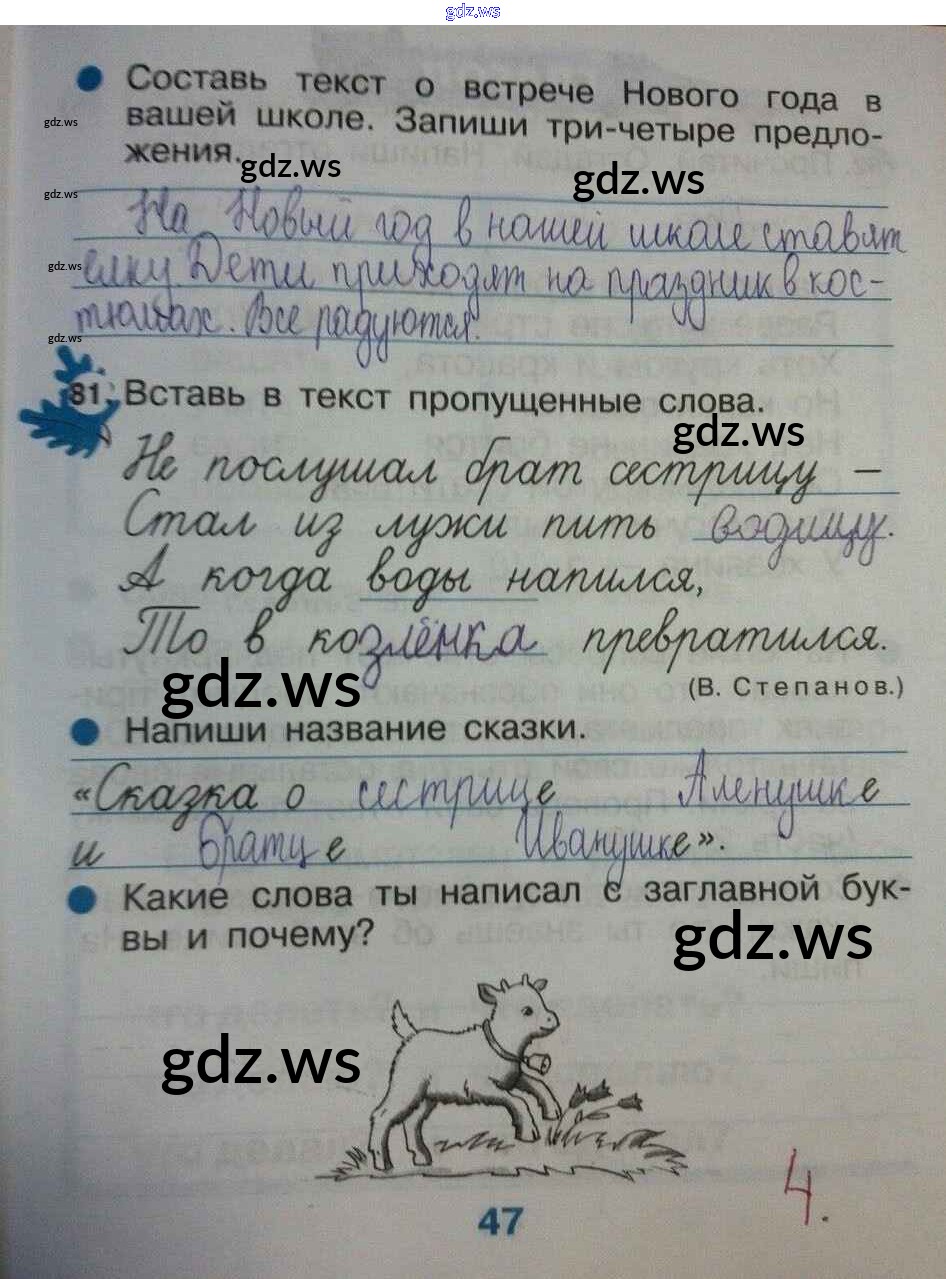 gdz.ws
Составь текст о встрече Нового года в
gdz.ws
вашей школе. Запиши три-четыре предло-
жения.
gdz.ws
gdz.ws
gdz.ws
На Новый год в нашей школе ставят
gdz.ws
елку Дети приходят на праздник в кос-
тюмах. Все радуются.
gdz.ws
81. Вставь в текст пропущенные слова.
gdz.ws
Не послушал брат сестрицу –
Стал из лужи пить водицу.
А когда воды напился,
То в козлёнка превратился.
gdz.ws
(В. Степанов.)
Напиши название сказки.
«Сказка о сестрице Аленушке
и братце Иванушке».
Какие слова ты написал с заглавной бук-
вы и почему?
gdz.ws
gdz.ws
4.
47